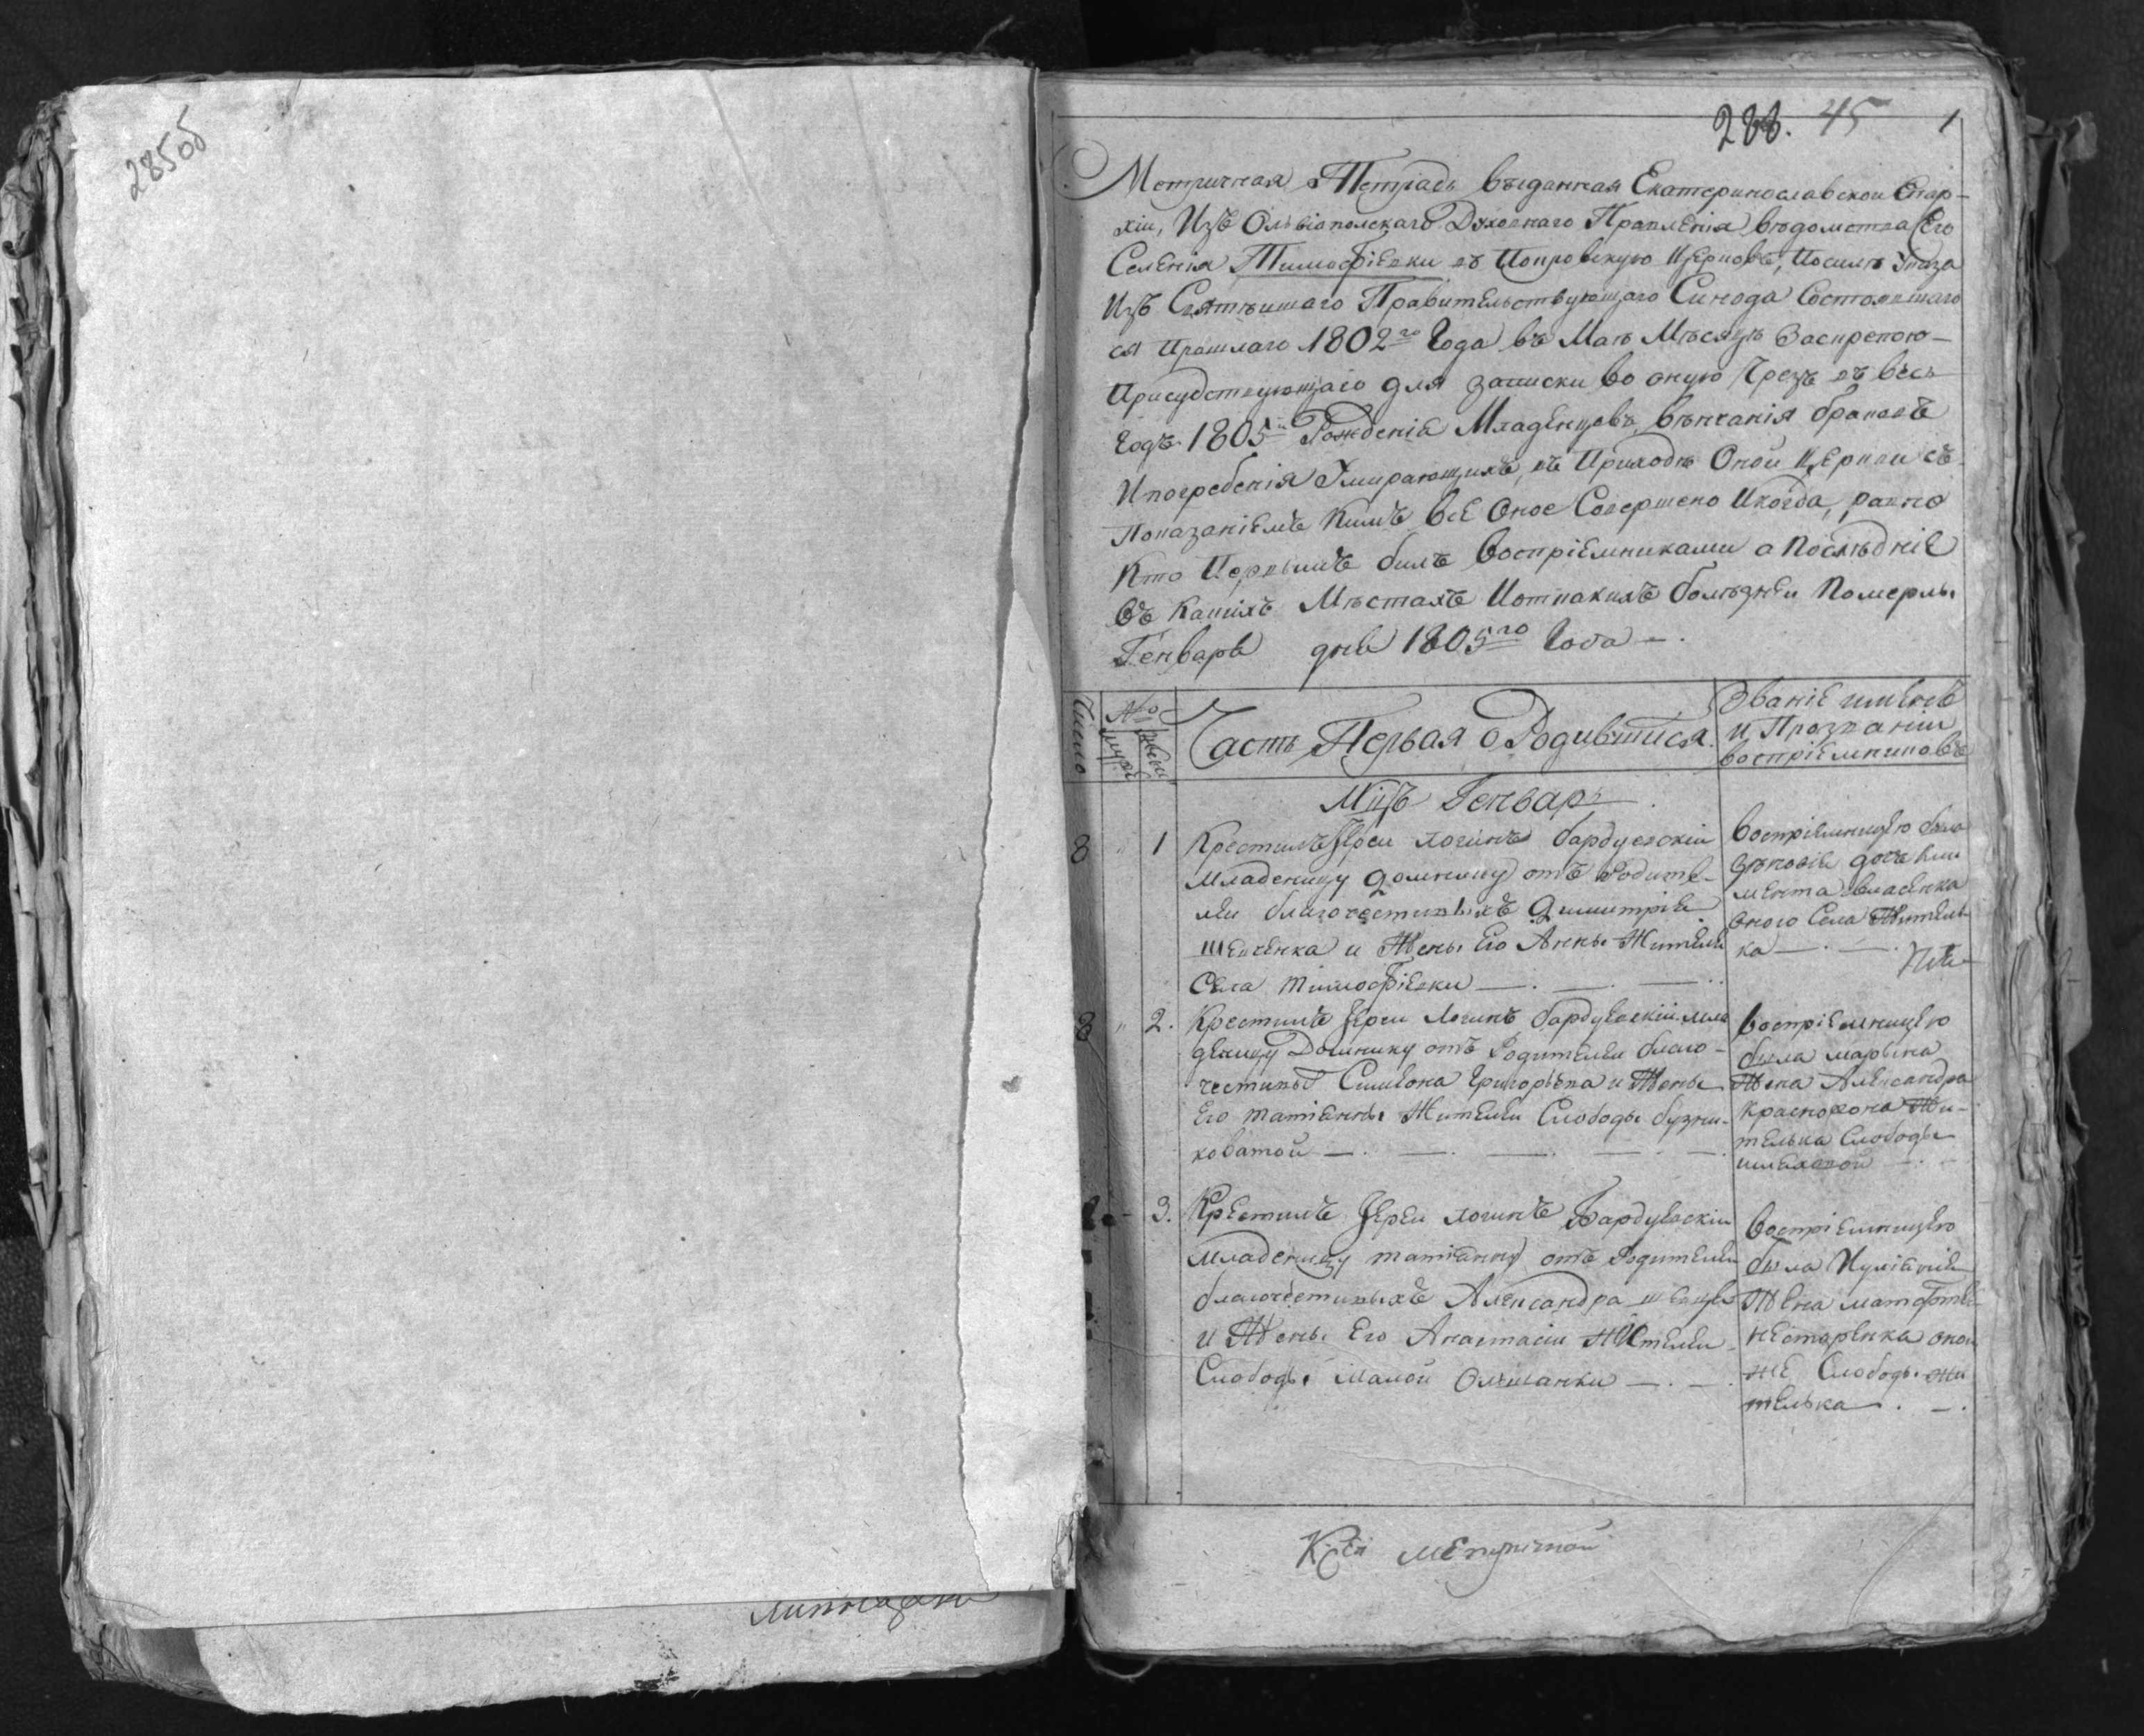 285об
286. 45 1
Метричная Тетрадь выданная Екатеринославской Епар-
хіи, Изъ Ольвіополскаго Духовнаго Правленія вѣдомства Его
Селенія Тимофіевки въ Покровскую Церковъ, Посилѣ Указа
Изъ Святѣишаго Правительствующаго Синода Состоявшаго
ся Прошлаго 1802го Года въ Маѣ Мѣсяцѣ Заскрепою-
Присудствующаго для записки во оную Чрезъ въ весь
Годъ 1805й Рожденія Младенцовъ, вѣнчанія браковъ
Ипогребенія Умирающихъ, въ Приходѣ Оной Церкви съ
Показаніемъ Кимъ всЕ Оное Совершено Икогда, равно
Кто Первымъ билъ Воспріемниками а Послѣдніе
Въ Какихъ Мѣстахъ Иотпакихъ болѣзнеи Померлы
Генваря дня 1805го Года —.
Число
№
муж
женс
Часть Первая о Родившихся.
Званіе имянъ
и Прозваніи
воспріемниковъ
Мцъ Генваръ
8 " 1 Крестилъ Іереи логинъ бардуевскіи
младеницу домнику отъ Родите-
леи благочестивыхъ Димитрія
шевченка и Жены Его Анны Жителеи
Села Тимофіевки —. —. —..
воспріемницею была
зѣновія дочь кли
мента власенка
оного Села Жителъ
ка —. —.
8 " 2. Крестилъ Іереи Логинъ бардуевскіи мла
деницу Домнику отъ Родителеи благо-
честивы Симеона Григорьева и Жены
Его татіанны Жителеи Слободы бузни-
коватой —. —. —. —. —.
воспріемницею
была марына
Жена Александра
краснохона Жи-
телька Слободы
3. Крестилъ Іереи логинъ Бардуевскіи
младеницу татіанну отъ Родителеи
благочестивыхъ Александра швеця
и Жены Его Анастасіи Жителеи
Слободы Малой Олшанки —. —.
воспріемницею
была Иуліанія
Жена матфея
нестаренка оной
же Слободы жи
телька. —.
метричной